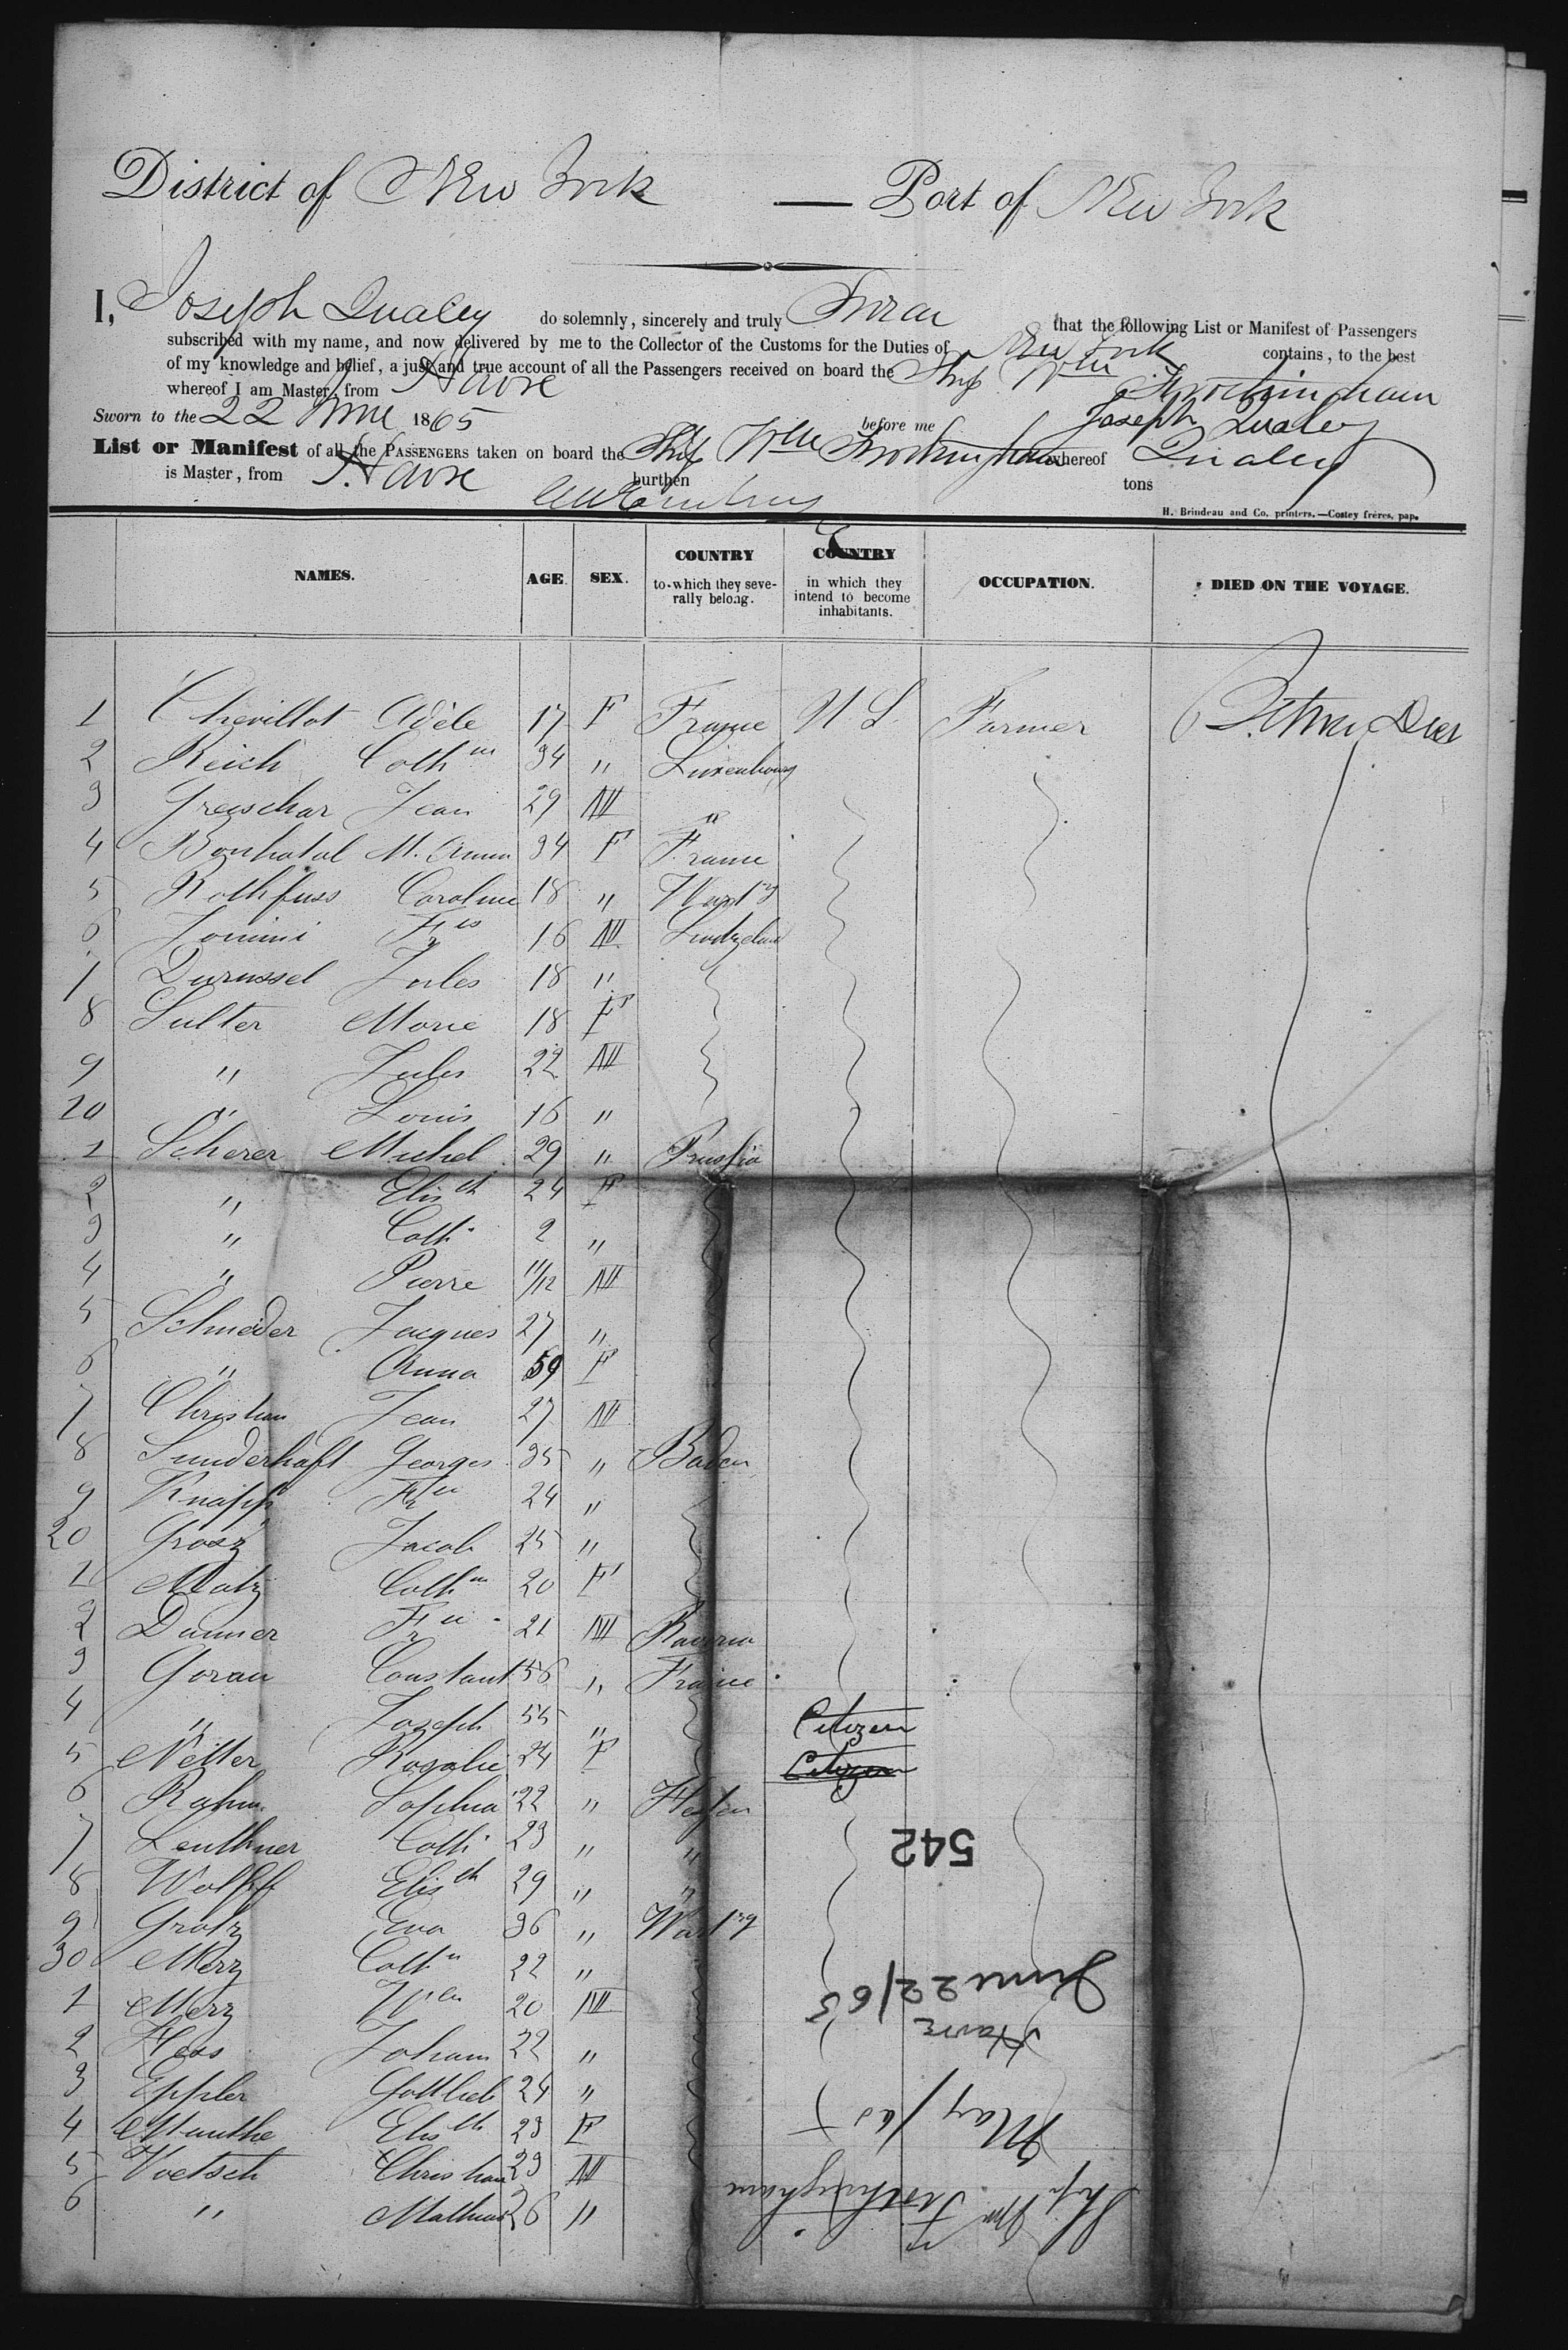 District of New York — Port of New York
I, Joseph Qualey do solemnly, sincerely and truly Swear that the following List or Manifest of Passengers
subscribed with my name, and now delivered by me to the Collector of the Customs for the Duties of New York contains, to the best
of my knowledge and belief, a just and true account of all the Passengers received on board the Ship Wm Frothingham
whereof I am Master, from Havre
Sworn to the 22 June 1865 before me Joseph Qualey
List or Manifest of all the PASSENGERS taken on board the Ship Wm Frothingham whereof Qualey
is Master, from Havre burthen tons
H. Brindeau and Co. printers.—Costey frères, pap.
NAMES. AGE. SEX. COUNTRY to which they severally belong. COUNTRY in which they intend to become inhabitants. OCCUPATION. DIED ON THE VOYAGE.
1 Chevillot Adèle 17 F France U S. Farmer
2 Reich Cathne 34 " Luxembourg
3 Greischar Jean 29 M "
4 Bonhatal M. Anna 34 F France
5 Rothfuss Caroline 18 " Wurtg
6 Jomini Fcs 16 M Switzeland
7 Durussel Jules 18 "
8 Sulter Marie 18 F
9 " Jules 22 M
10 " Louis 16 "
1 Scherer Michel 29 " Prussia
2 " Elisth 24 F
3 " Cath. 2 "
4 " Pierre 11/12 M
5 Schneider Jacques 27 "
6 " Anna 59 F
7 Christian Jean 27 M
8 Sunderhaft Georges 35 " Baden
9 Knapp 24 "
20 Grosz Jacob 25 "
1 Matz Cathne 20 F
2 Danner 21 M Bavaria
3 Goran Constant 56 " France
4 " Joseph 55 " Citizen
5 Netter Rosalie 24 F Citizen
6 Rahm Sophia 22 " Hessen
7 Leuthner Cath. 23 " "
8 Wolff Elisth 29 " "
9 Gratz Eva 36 " Wurtg
30 Merz Cathn 22 "
1 Merz Wm 20 M
2 Hess Johann 22 "
3 Eppler Gottlieb 24 "
4 Manthe Elisth 23 F
5 Voetsch Christian 23 M
6 " Mathias 26 "
542
June 22/65
Havre
May/65
Ship Wm Frothingham